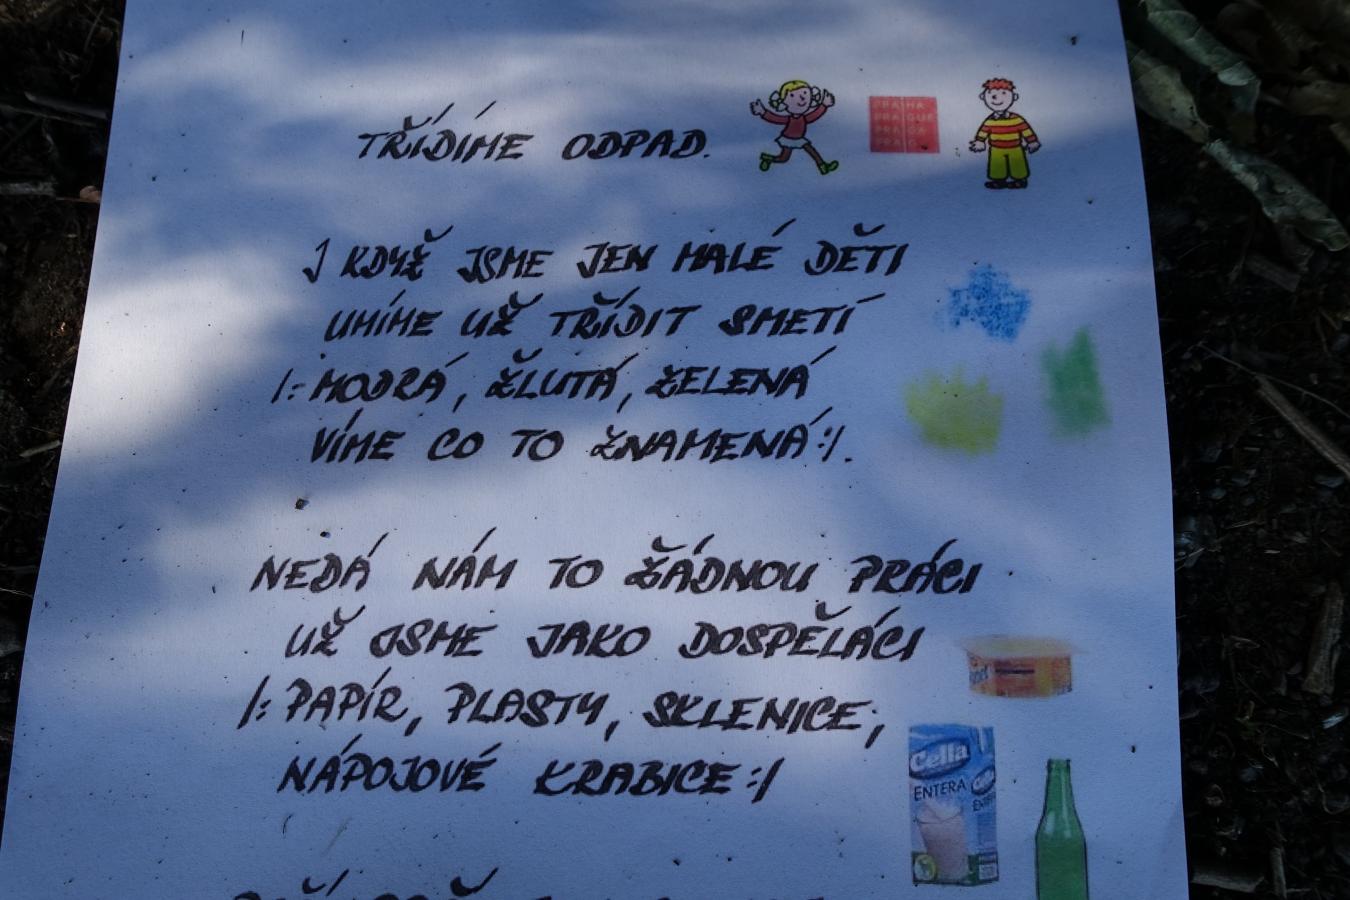 TŘÍDÍME ODPAD.
PRA HA
PRA GUE
PRA GA
PRA G
I KDYŽ JSME JEN MALÉ DĚTI
UMÍME UŽ TŘÍDIT SMETÍ
/: MODRÁ, ŽLUTÁ, ZELENÁ
VÍME CO TO ZNAMENÁ :/.
NEDÁ NÁM TO ŽÁDNOU PRÁCI
UŽ JSME JAKO DOSPĚLÁCI
/: PAPÍR, PLASTY, SKLENICE,
NÁPOJOVÉ KRABICE :/
Cella
ENTERA